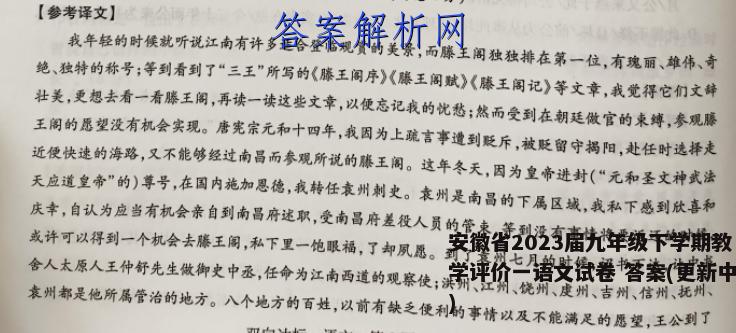 【参考译文】
答案解析网
我年轻的时候就听说江南有许多适合登临观赏的美景,而滕王阁独独排在第一位,有瑰丽、雄伟、奇
绝、独特的称号;等到看到了“三王”所写的《滕王阁序》《滕王阁赋》《滕王阁记》等文章,我觉得它们文辞
壮美,更想去看一看滕王阁,再读一读这些文章,以便忘记我的忧愁;然而受到在朝廷做官的束缚,参观滕
王阁的愿望没有机会实现。唐宪宗元和十四年,我因为上疏言事遭到贬斥,被贬留守揭阳,赴任时选择走
近便快速的海路,又不能够经过南昌而参观所说的滕王阁。这年冬天,因为皇帝进封(“元和圣文神武法
天应道皇帝”的)尊号,在国内施加恩德,我转任袁州刺史。袁州是南昌的下属区域,我私下感到欣喜和
庆幸,自认为应当有机会亲自到南昌府述职,受南昌府差役人员的管束,等到没有事情
或许可以得到一个机会去滕王阁,私下里一饱眼福,了却夙愿。到了袁州七月的时候
安徽省2023届九年级下学期教
学评价一语文试卷 答案(更新中
)
舍人太原人王仲舒先生做御史中丞,任命为江南西道的观察使;洪州、江州、饶州、虔州、吉州、信州、抚州、
袁州都是他所属管治的地方。八个地方的百姓,以前有缺乏便利的事情以及不能满足的愿望,王公到了